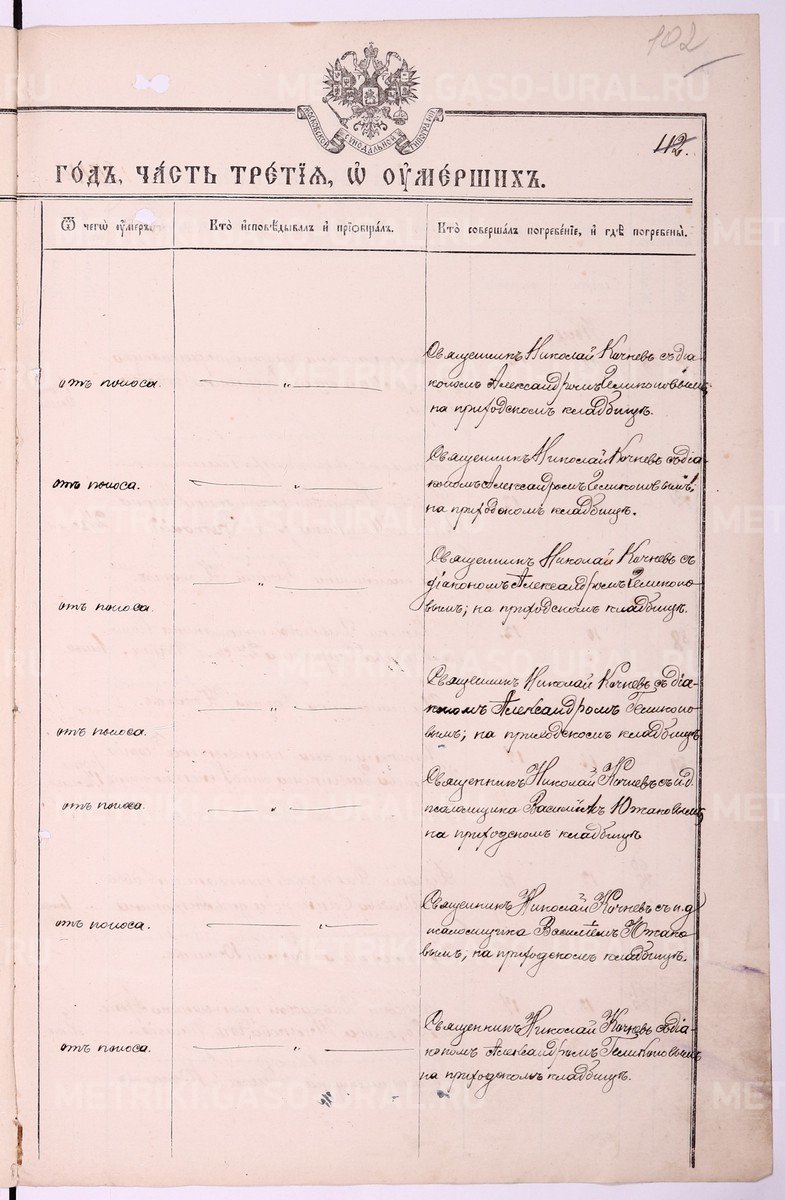 102
МОСКОВСКОЙ СѴНОДАЛЬНОЙ ТИПОГРАФІИ
112.
ГОДЪ, ЧАСТЬ ТРЕТІЯ, Ѡ ОУМЕРШИХЪ.
Ѿ чегѡ оумеръ.
Кто исповѣдывалъ и пріобщалъ.
Кто совершалъ погребеніе, и гдѣ погребены.
отъ поноса.
— „ —
Священникъ Николай Кочневъ съ діа-
кономъ Александромъ Геликоновымъ;
на приходскомъ кладбищѣ.
отъ поноса.
— „ —
Священникъ Николай Кочневъ съ діа-
кономъ Александромъ Геликоновымъ;
на приходскомъ кладбищѣ.
отъ поноса.
— „ —
Священникъ Николай Кочневъ съ
діакономъ Александромъ Геликоно-
вымъ; на приходскомъ кладбищѣ.
отъ поноса.
— „ —
Священникъ Николай Кочневъ съ діа-
кономъ Александромъ Геликоно-
вымъ; на приходскомъ кладбищѣ
отъ поноса.
— „ —
Священникъ Николай Кочневъ съ и.д.
псаломщика Василіемъ Южаковымъ
на приходскомъ кладбищѣ
отъ поноса.
— „ —
Священникъ Николай Кочневъ съ и.д
псаломщика Василіемъ Южако-
вымъ; на приходскомъ кладбищѣ.
отъ поноса.
— „ —
Священникъ Николай Кочневъ съ діа-
кономъ Александромъ Геликоновымъ
на приходскомъ кладбищѣ.
METRIKI.GASO-URAL.RU